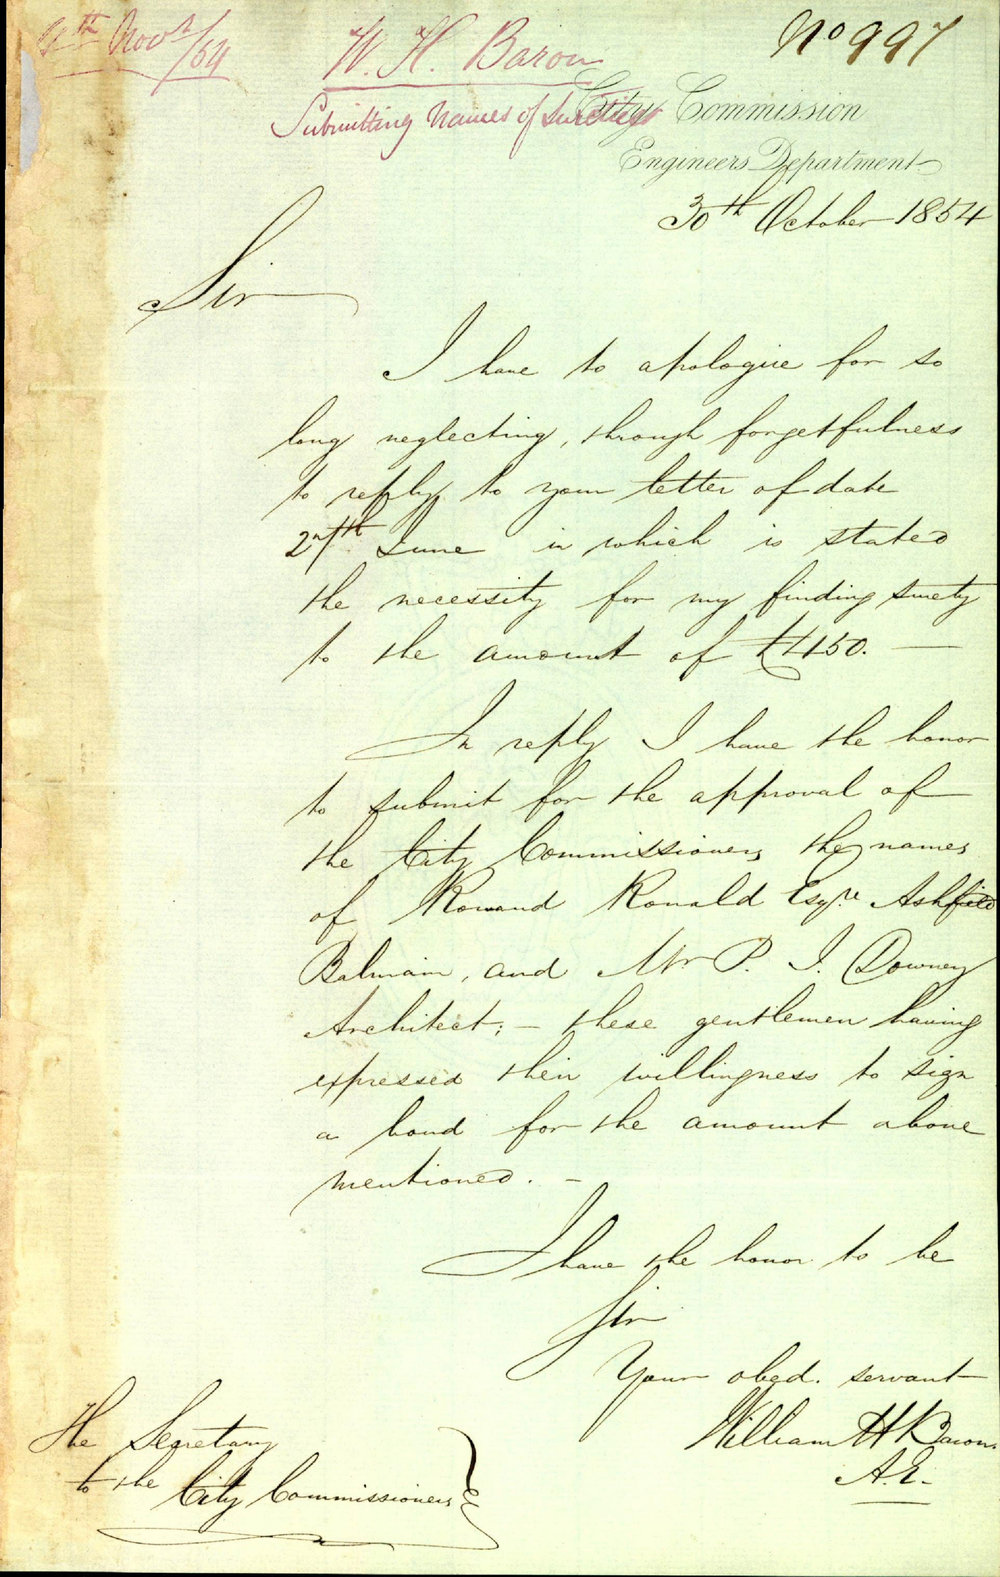 4th Novr/54
W. H. Baron
No 997
Submitting Names of Sureties
City Commission
Engineers Department
30th October 1854
Sir
I have to apologise for so
long neglecting, through forgetfulness
to reply to your letter of date
27th June in which is stated
the necessity for my finding surety
to the amount of £450. —
In reply I have the honor
to submit for the approval of
the City Commissioners the names
of Rowand Ronald Esqre Ashfield
Balmain, and Mr P. J. Downey
Architect; — these gentlemen having
expressed their willingness to sign
a bond for the amount above
mentioned. —
I have the honor to be
Sir
Your obed. servant
William H Baron
A.E.
The Secretary
to the City Commissioners